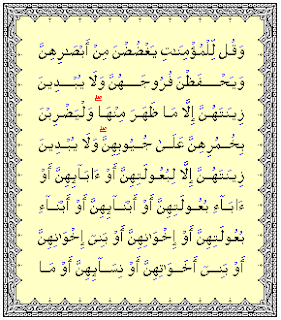 وَقُل لِّلْمُؤْمِنَٰتِ يَغْضُضْنَ مِنْ أَبْصَٰرِهِنَّ
وَيَحْفَظْنَ فُرُوجَهُنَّ وَلَا يُبْدِينَ
زِينَتَهُنَّ إِلَّا مَا ظَهَرَ مِنْهَا ۖ وَلْيَضْرِبْنَ
بِخُمُرِهِنَّ عَلَىٰ جُيُوبِهِنَّ ۖ وَلَا يُبْدِينَ
زِينَتَهُنَّ إِلَّا لِبُعُولَتِهِنَّ أَوْ ءَابَآئِهِنَّ أَوْ
ءَابَآءِ بُعُولَتِهِنَّ أَوْ أَبْنَآئِهِنَّ أَوْ أَبْنَآءِ
بُعُولَتِهِنَّ أَوْ إِخْوَٰنِهِنَّ أَوْ بَنِىٓ إِخْوَٰنِهِنَّ
أَوْ بَنِىٓ أَخَوَٰتِهِنَّ أَوْ نِسَآئِهِنَّ أَوْ مَا